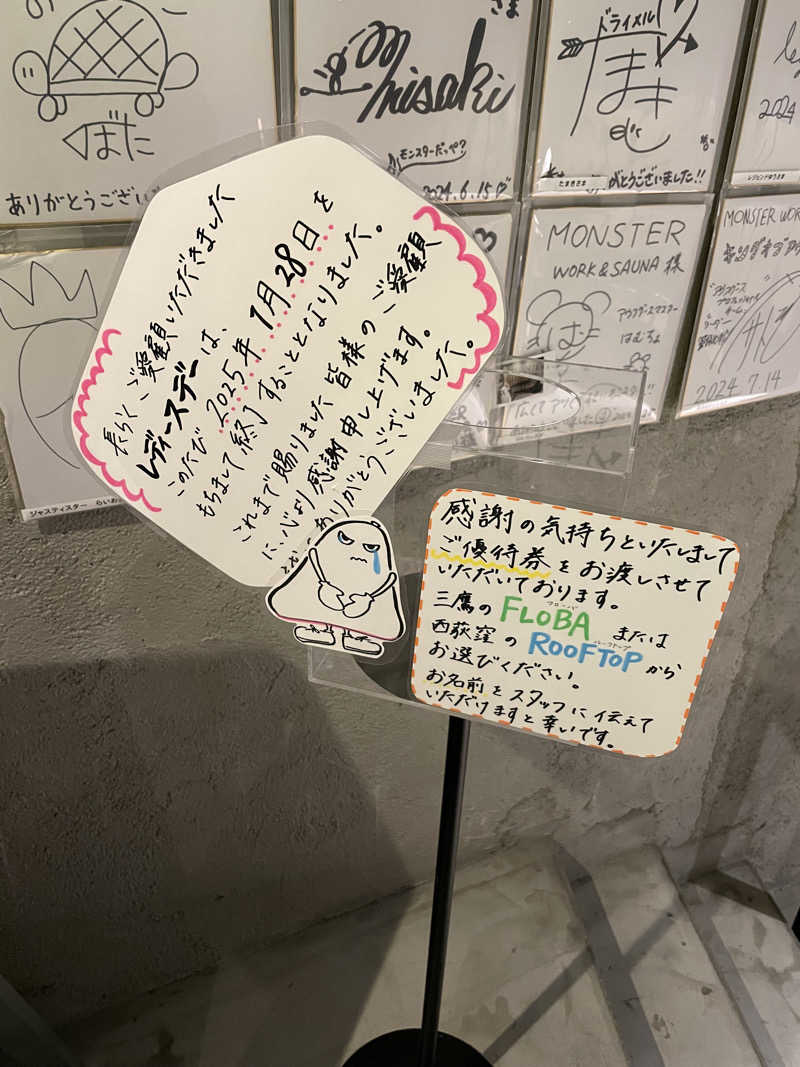 ばた
ありがとうござい
さま
misaki
モンスターだっぺ?
2024.6.15
ドライメル
まき
たまきさま
がとうございました!!
2024
MONSTER
WORK & SAUNA 様
アウフグースマスター
はむちょ
MONSTER WOR
アウフグース
プロフェッショナル
チーム
リーダー
2024 7.14
ジャスティスター らいお
長らくご愛顧いただきました
レディースデーは、
このたび2025年1月28日を
もちまして終了することとなりました。
これまで賜りました皆様のご愛顧
に、心より感謝申し上げます。
ありがとうございました。
感謝の気持ちといたしまして
ご優待券をお渡しさせて
いただいております。
三鷹のFLOBAまたは
フローバ
西荻窪のROOFTOPから
ルーフトップ
お選びください。
お名前をスタッフに伝えて
いただけますと幸いです。